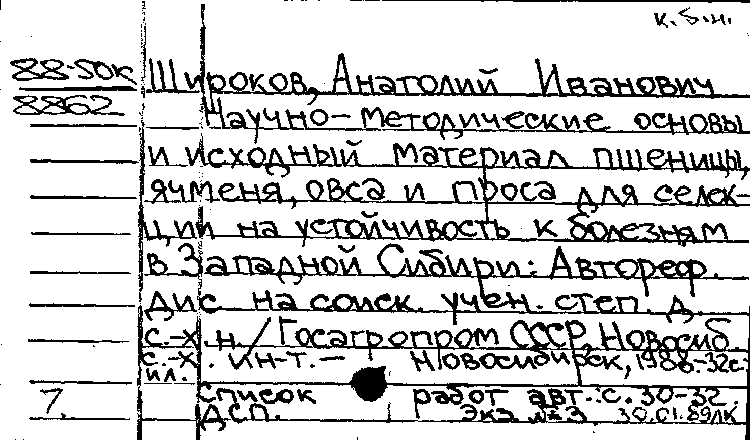 к.б.н.
88-50к Широков, Анатолий Иванович
8862 Научно-методические основы
и исходный материал пшеницы,
ячменя, овса и проса для селек-
ции на устойчивость к болезням
в Западной Сибири: Автореф.
дис на соиск. учен. степ. д.
с.-х.н./Госагропром СССР, Новосиб.
с.-х. ин-т. – Новосибирск, 1988.-32с.
ил.
7. Список работ авт.: с. 30-32.
ДСП. Экз. №3 30.01.89